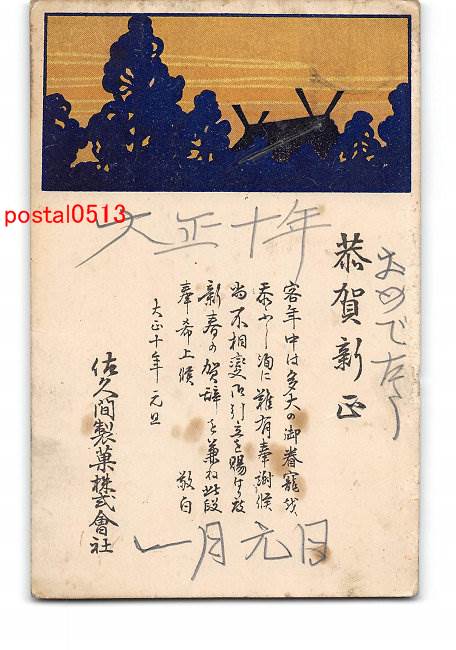 postal0513
大正十年
おめでたう
恭賀新正
客年中は多大の御眷寵を
忝ふし洵に難有奉謝候
尚不相変御引立を賜はり度
新春の賀辞を兼ね此段
奉希上候
敬白
大正十年一月元旦
佐久間製菓株式會社
一月元日